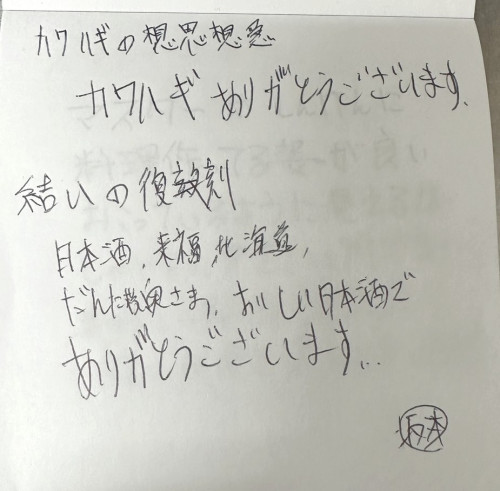 カワハギの想思想急
カワハギ ありがとうございます、
結いの復刻
日本酒、来福、北海道、
だんだ奥さま、おいしい日本酒で
ありがとうございます...
坂本